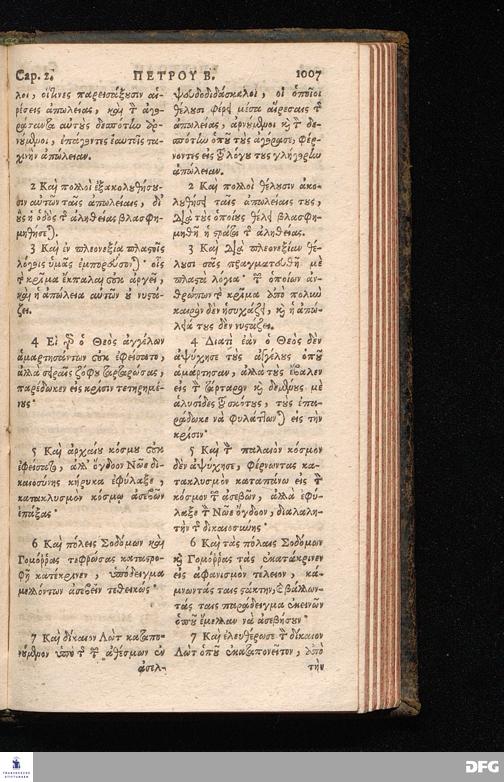 Cap. 2. ΠΕΤΡΟΥ Β. 1007
λοι, οἵτινες παρεισάξουσιν αἱ-
ρέσεις ἀπωλείας, καὶ τὸν ἀγο-
ράσαντα αὐτοὺς δεσπότην ἀρ-
νούμενοι, ἐπάγοντες ἑαυτοῖς τα-
χινὴν ἀπώλειαν.
2 Καὶ πολλοὶ ἐξακολουθήσου-
σιν αὐτῶν ταῖς ἀπωλείαις, δι'
οὓς ἡ ὁδὸς τῆς ἀληθείας βλασφη-
μηθήσεται.
3 Καὶ ἐν πλεονεξίᾳ πλαστοῖς
λόγοις ὑμᾶς ἐμπορεύσονται· οἷς
τὸ κρῖμα ἔκπαλαι οὐκ ἀργεῖ,
καὶ ἡ ἀπώλεια αὐτῶν οὐ νυστά-
ζει.
4 Εἰ γὰρ ὁ Θεὸς ἀγγέλων
ἁμαρτησάντων οὐκ ἐφείσατο,
ἀλλὰ σειραῖς ζόφου ταρταρώσας,
παρέδωκεν εἰς κρίσιν τετηρημέ-
νους·
5 Καὶ ἀρχαίου κόσμου οὐκ
ἐφείσατο, ἀλλ' ὄγδοον Νῶε δι-
καιοσύνης κήρυκα ἐφύλαξε,
κατακλυσμὸν κόσμῳ ἀσεβῶν
ἐπάξας·
6 Καὶ πόλεις Σοδόμων καὶ
Γομόῤῥας τεφρώσας καταστρο-
φῇ κατέκρινεν, ὑπόδειγμα
μελλόντων ἀσεβεῖν τεθεικώς·
7 Καὶ δίκαιον Λὼτ καταπο-
νούμενον ὑπὸ τῆς τῶν ἀθέσμων ἐν
ἀσελ-
ψευδοδιδάσκαλοι, οἱ ὁποῖοι
θέλουσι φέρει μέσα αἵρεσαις τῆς
ἀπωλείας, ἀρνούμενοι καὶ τὸν δε-
σπότην ὁποῦ τοὺς ἀγόρασε, φέρ-
νοντες εἰς τοῦ λόγου τους γλήγορην
ἀπώλειαν.
2 Καὶ πολλοὶ θέλουσιν ἀκο-
λουθήσει ταῖς ἀπωλείαις τους,
διὰ τοὺς ὁποίους θέλει βλασφη-
μηθῆ ἡ στράτα τῆς ἀληθείας.
3 Καὶ διὰ πλεονεξίαν θέ-
λουσι σᾶς πραγματευθῆ μὲ
πλαστὰ λόγια· τῶν ὁποίων ἀν-
θρώπων τὸ κρῖμα ἀπὸ πολὺν
καιρὸν δὲν ἡσυχάζει, καὶ ἡ ἀπώ-
λειά τους δὲν νυστάζει.
4 Διατὶ ἐὰν ὁ Θεὸς δὲν
ἀψύχησε τοὺς ἀγγέλους ὁποῦ
ἁμάρτησαν, ἀλλὰ τοὺς ἔβαλεν
εἰς τὸν τάρταρον καὶ δεμένους μὲ
ἁλυσίδες τοῦ σκότους, τοὺς ἐπα-
ράδωκε νὰ φυλάττωνται εἰς τὴν
κρίσιν·
5 Καὶ τὸν παλαιὸν κόσμον
δὲν ἀψύχησε, φέρνωντας κα-
τακλυσμὸν καταπάνω εἰς τὸν
κόσμον τῶν ἀσεβῶν, ἀλλὰ ἐφύ-
λαξε τὸν Νῶε ὄγδοον, διαλαλη-
τὴν τῆς δικαιοσύνης·
6 Καὶ τὰς πόλαις Σοδόμων
καὶ Γομόῤῥας τὰς ἐκατάκρινεν
εἰς ἀφανισμὸν τέλειον, κά-
μνωντάς ταις στάκτην, καὶ βάλλων-
τάς ταις παράδειγμα ἐκεινῶν
ὁποῦ ἔμελλαν νὰ ἀσεβήσουν·
7 Καὶ ἐλευθέρωσε τὸν δίκαιον
Λὼτ ὁποῦ ἐκαταπονεῖτον, ἀπὸ
τὴν
DFG